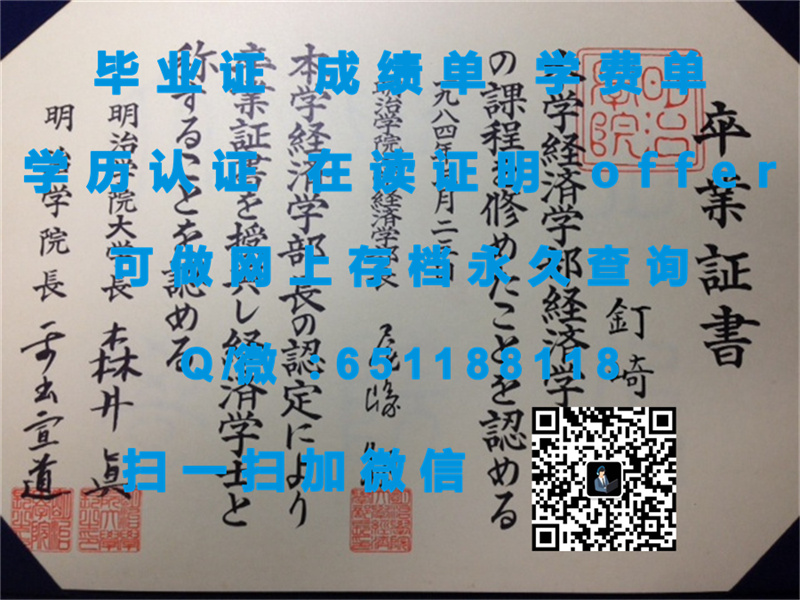 毕业证 成绩单 学费单
学历认证 在读证明 offer
可做网上存档永久查询
Q/微:651188118
扫一扫加微信
卒業証書
釘崎
本学経済学部経済学
の課程を修めたことを認める
一九八四年 月二 日
明治学院 経済学部長
本学経済学部長の認定により
卒業証書を授与し経済学士と
称することを認める
明治学院大学長 森井 眞
明治学院長 平出宣道